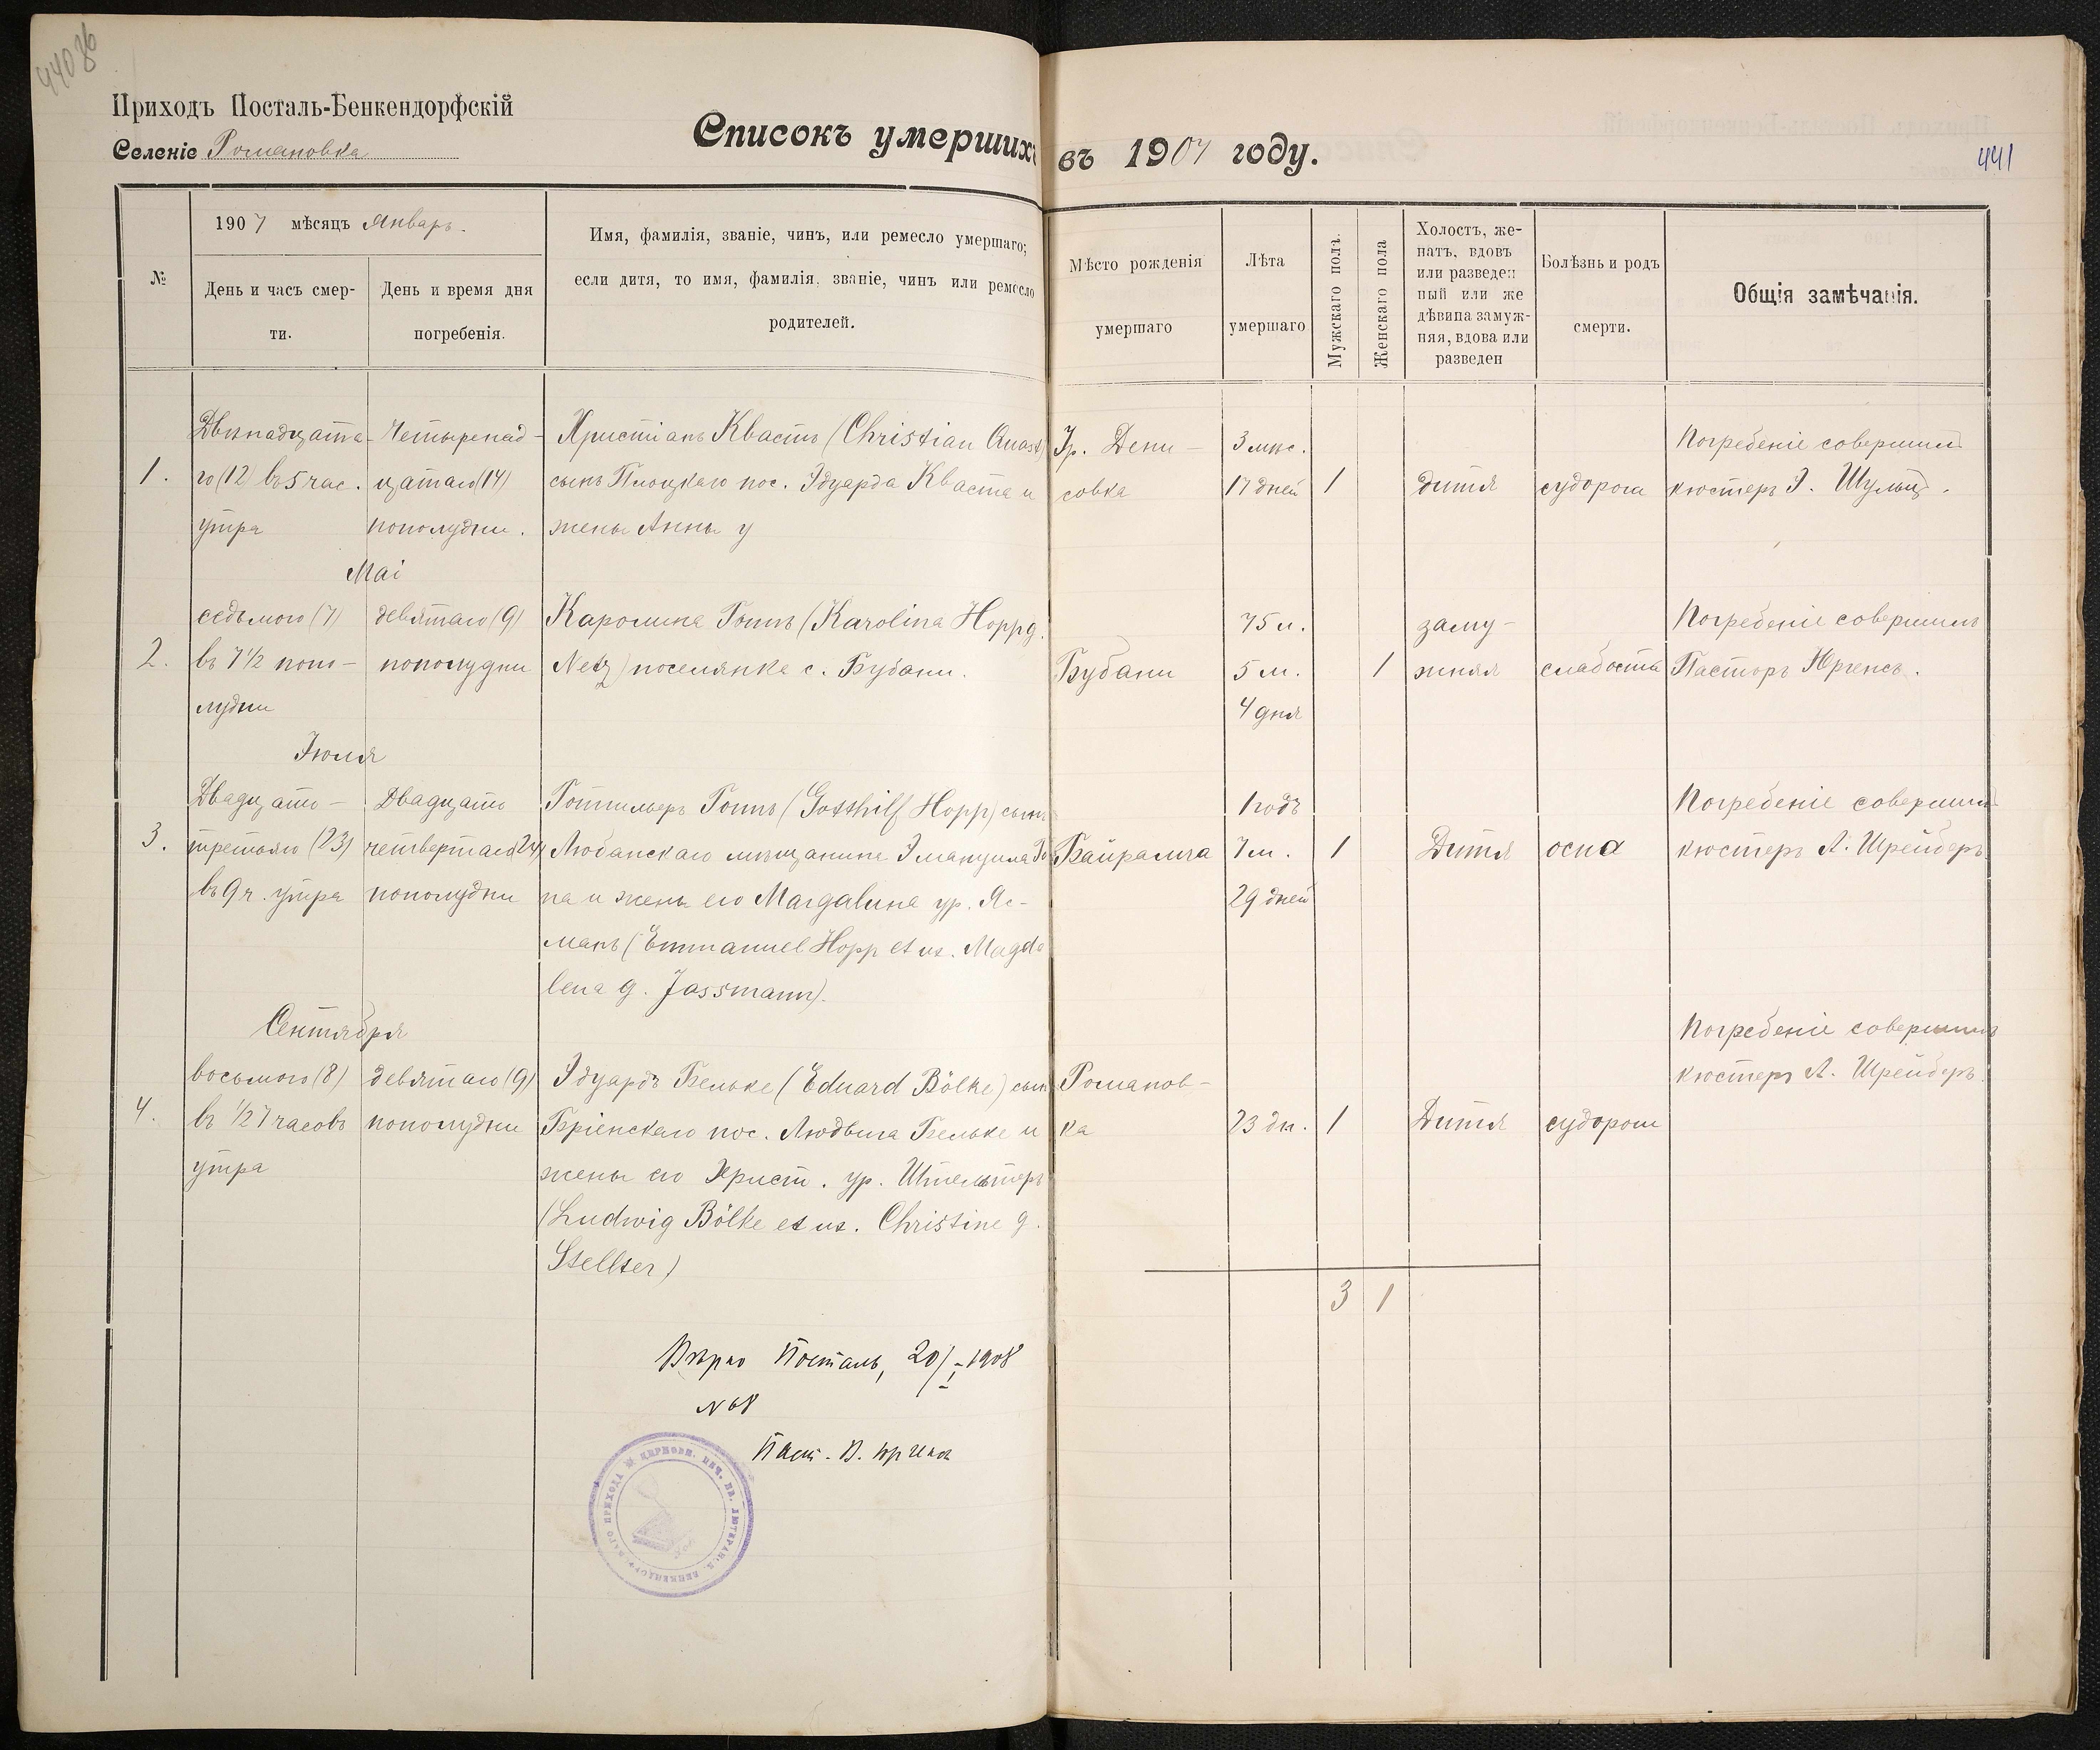 440 об
Приходъ Посталь-Бенкендорфскій
Селеніе Романовка
Списокъ умершихъ въ 1907 году.
441
№
1907 мѣсяцъ Январь.
День и часъ смер-
ти.
День и время дня
погребенія.
Имя, фамилія, званіе, чинъ, или ремесло умершаго;
если дитя, то имя, фамилія, званіе, чинъ или ремесло
родителей.
Мѣсто рожденія
умершаго
Лѣта
умершаго
Мужскаго полъ.
Женскаго пола
Холостъ, же-
натъ, вдовъ
или разведен
ный или же
дѣвица замуж-
няя, вдова или
разведен
Болѣзнь и родъ
смерти.
Общія замѣчанія.
1.
Двѣнадцата-
го (12) въ 5 час.
утра
Четыренад-
цатаго (14)
пополудни.
Христіанъ Квастъ (Christian Quast)
сынъ Плоцкаго пос. Эдуарда Кваста и
жены Анны у
Гр. Дени-
совка
3 мѣс.
17 дней
1
дитя
судорога
Погребеніе совершил
кюстеръ Э. Шульц.
Маі
2.
седьмого (7)
въ 7 1/2 попо-
лудни
девятаго (9)
пополудни
Каролина Гоппъ (Karolina Hopp g.
Netz) поселянка с. Бубани.
Бубани
75 л.
5 м.
4 дня
1
заму-
жняя
слабость
Погребеніе совершилъ
Пасторъ Юргенсъ.
Іюля
3.
Двадцато-
третьяго (23)
въ 9 ч. утра
Двадцато
четвертаго (24)
пополудни
Готтильеръ Гоппъ (Gotthilf Hopp) сынъ
Любанскаго мѣщанина Эмануила Го
па и жены его Магдалина ур. Яс-
манъ (Emmanuel Hopp et ux. Magda
lena g. Jassmann).
Байрамча
1 годъ
7 м.
29 дней
1
Дитя
оспа
Погребеніе совершил
кюстеръ А. Шрейберъ.
Сентября
4.
восьмого (8)
въ 1/2 7 часовъ
утра
девятаго (9)
пополудни
Эдуардъ Бельке (Eduard Bölke) сын
Бріенскаго пос. Людвига Бельке и
жены его Христ. ур. Штельтеръ
(Ludwig Bölke et ux. Christine g.
Stellter)
Романов-
ка
23 дн.
1
Дитя
судороги
Погребеніе совершилъ
кюстеръ А. Шрейберъ.
3 1
Вѣрно Посталь, 20/I 1908
N 68
Паст. В. Юргенсъ